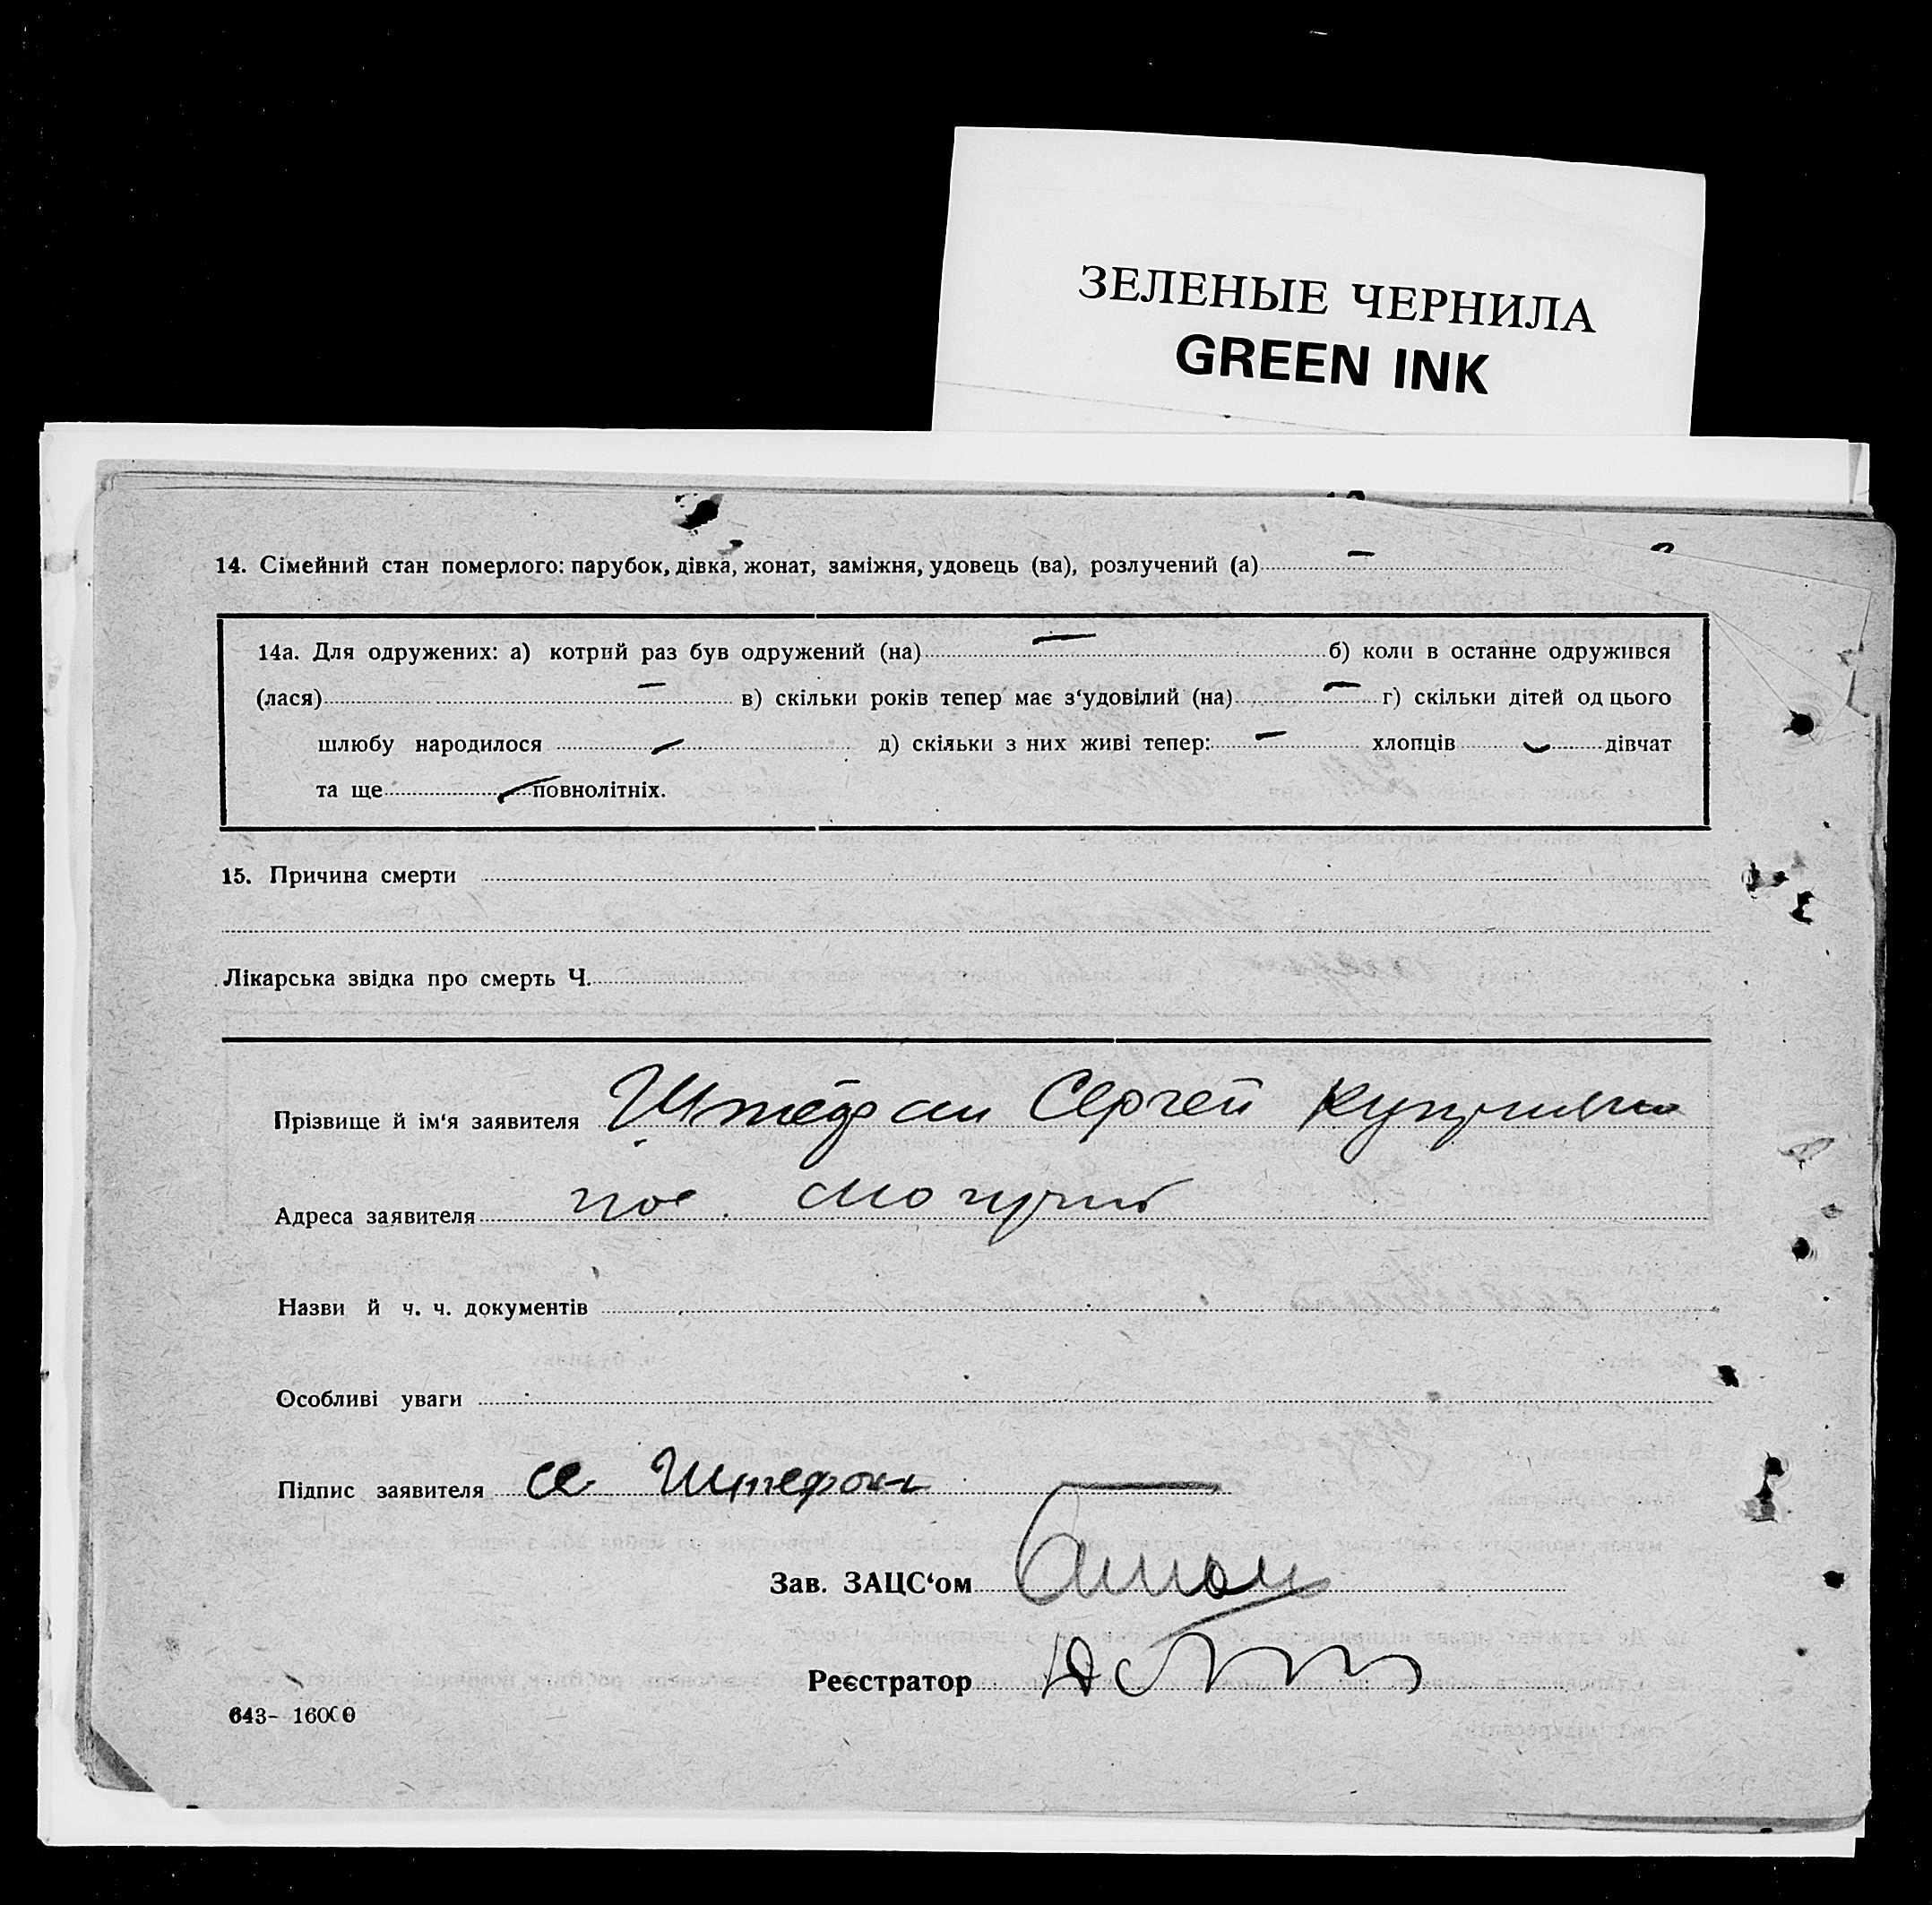 ЗЕЛЕНЫЕ ЧЕРНИЛА
GREEN INK
14. Сімейний стан померлого: парубок, дівка, жонат, заміжня, удовець (ва), розлучений (а) —
14а. Для одружених: а) котрий раз був одружений (на) — б) коли в останне одружився
(лася) — в) скільки років тепер має з‘удовілий (на) — г) скільки дітей од цього
шлюбу народилося — д) скільки з них живі тепер: — хлопців — дівчат
та ще — повнолітніх.
15. Причина смерти
Лікарська звідка про смерть Ч.
Прізвище й ім‘я заявителя Штефан Сергей
Адреса заявителя пос.
Назви й ч. ч. документів
Особливі уваги
Підпис заявителя Штефан
Зав. ЗАЦС‘ом
Реєстратор
643- 16000